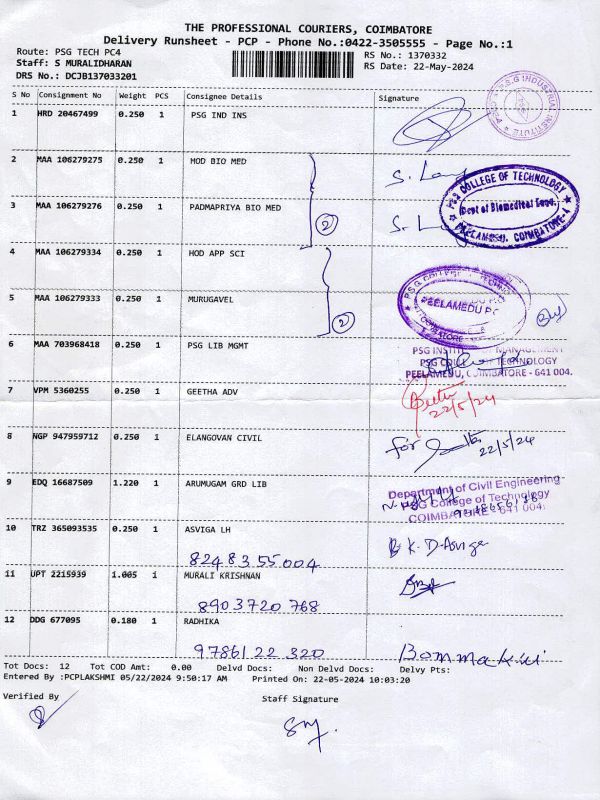 THE PROFESSIONAL COURIERS, COIMBATORE
Delivery Runsheet - PCP - Phone No.:0422-3505555 - Page No.:1
Route: PSG TECH PC4 RS No.: 1370332
Staff: S MURALIDHARAN RS Date: 22-May-2024
DRS No.: DCJB137033201
S No Consignment No Weight PCS Consignee Details Signature
1 HRD 20467499 0.250 1 PSG IND INS
P.S.G INDUSTRIAL INSTITUTE
2 MAA 106279275 0.250 1 HOD BIO MED
PSG COLLEGE OF TECHNOLOGY
Dept of Biomedical Engg.
PEELAMEDU, COIMBATORE-4
3 MAA 106279276 0.250 1 PADMAPRIYA BIO MED
2
4 MAA 106279334 0.250 1 HOD APP SCI
5 MAA 106279333 0.250 1 MURUGAVEL
2
PEELAMEDU P.O
COIMBATORE
6 MAA 703968418 0.250 1 PSG LIB MGMT
PSG MANAGEMENT
PSG TECHNOLOGY
PEELAMEDU, COIMBATORE - 641 004.
7 VPM 5360255 0.250 1 GEETHA ADV
Geetha
22/5/24
8 NGP 947959712 0.250 1 ELANGOVAN CIVIL
for 22/5/24
9 EDQ 16687509 1.220 1 ARUMUGAM GRD LIB
Department of Civil Engineering
PSG College of Technology
COIMBATORE - 641 004.
10 TRZ 365093535 0.250 1 ASVIGA LH
8248355004
11 UPT 2215939 1.005 1 MURALI KRISHNAN
8903720768
12 DDG 677095 0.180 1 RADHIKA
9786122320
Tot Docs: 12 Tot COD Amt: 0.00 Delvd Docs: Non Delvd Docs: Delvy Pts:
Entered By :PCPLAKSHMI 05/22/2024 9:50:17 AM Printed On: 22-05-2024 10:03:20
Verified By Staff Signature